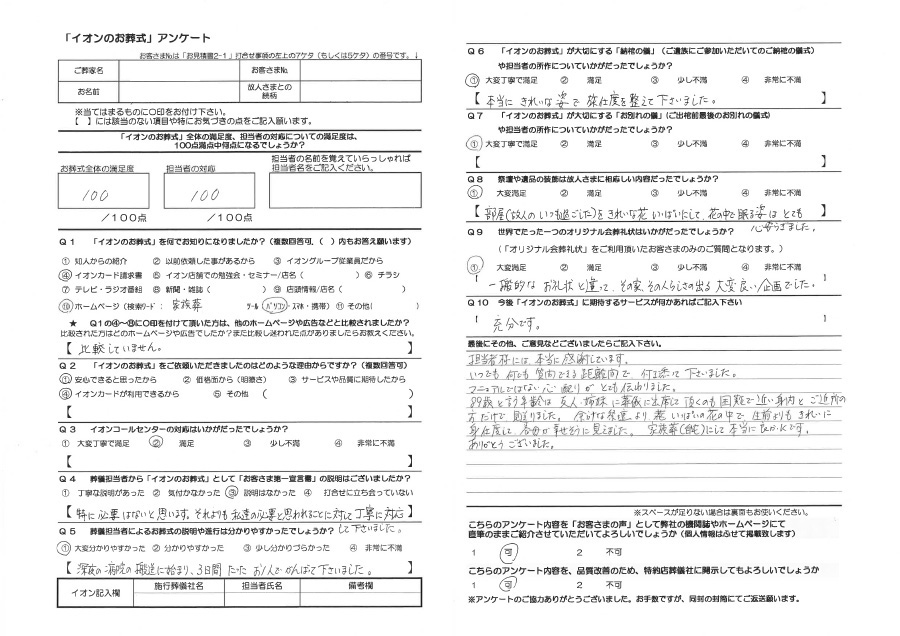 「イオンのお葬式」アンケート
お客さまNoは「お見積書2-1」打合せ事項の左上の7ケタ(もしくは5ケタ)の番号です。↓
ご葬家名 お客さまNo.
お名前 故人さまとの続柄
※当てはまるものに○印をお付け下さい。
【 】には該当のない項目や特にお気づきの点をご記入願います。
「イオンのお葬式」全体の満足度、担当者の対応についての満足度は、
100点満点中何点になるでしょうか?
お葬式全体の満足度 担当者の対応 担当者の名前を覚えていらっしゃれば
担当者名をご記入ください。
100 100
/100点 /100点
Q1 「イオンのお葬式」を何でお知りになりましたか?(複数回答可、( )内もお答え願います)
① 知人からの紹介 ② 以前依頼した事があるから ③ イオングループ従業員だから
④ イオンカード請求書 ⑤ イオン店舗での勉強会・セミナー/店名( ) ⑥ チラシ
⑦ テレビ・ラジオ番組 ⑧ 新聞・雑誌( ) ⑨ 店頭情報/店名( )
⑩ ホームページ(検索ワード: 家族葬 ツール パソコン・スマホ・携帯) ⑪ その他( )
★ Q1の④~⑩に○印を付けて頂いた方は、他のホームページや広告などと比較されましたか?
比較された方はどのホームページや広告でしたか?また比較し迷われた点がありましたらお教えください。
【 比較していません。
Q2 「イオンのお葬式」をご依頼いただきましたのはどのような理由からですか?(複数回答可)
① 安心できると思ったから ② 価格面から(明瞭さ) ③ サービスや品質に期待したから
④ イオンカードが利用できるから ⑤ その他 ( )
【 】
Q3 イオンコールセンターの対応はいかがだったでしょうか?
① 大変丁寧で満足 ② 満足 ③ 少し不満 ④ 非常に不満
【 】
Q4 葬儀担当者から「イオンのお葬式」として「お客さま第一宣言書」の説明はございましたか?
① 丁寧な説明があった ② 気付かなかった ③ 説明はなかった ④ 打合せに立ち会っていない
【 特に必要はないと思います。それよりも私達の必要と思われることに対して丁寧に対応 】
して下さいました。
Q5 葬儀担当者によるお葬式の説明や進行は分かりやすかったでしょうか?
① 大変分かりやすかった ② 分かりやすかった ③ 少し分かりづらかった ④ 非常に不満
【 深夜の病院の搬送に始まり、3日間たったお1人でがんばって下さいました。 】
イオン記入欄 施行葬儀社名 担当者氏名 備考欄
Q6 「イオンのお葬式」が大切にする「納棺の儀」(ご遺族にご参加いただいてのご納棺の儀式)
や担当者の所作についていかがだったでしょうか?
① 大変丁寧で満足 ② 満足 ③ 少し不満 ④ 非常に不満
【 本当にきれいな姿で旅仕度を整えて下さいました。 】
Q7 「イオンのお葬式」が大切にする「お別れの儀」(ご出棺前最後のお別れの儀式)
や担当者の所作についていかがだったでしょうか?
① 大変丁寧で満足 ② 満足 ③ 少し不満 ④ 非常に不満
【 】
Q8 祭壇や遺品の装飾は故人さまに相応しい内容だったでしょうか?
① 大変満足 ② 満足 ③ 少し不満 ④ 非常に不満
【 部屋(故人のいつも過ごした)をきれいな花いっぱいにして、花の中で眠る姿はとても 】
心安らぎました。
Q9 世界でたった一つのオリジナル会葬礼状はいかがだったでしょうか?
(「オリジナル会葬礼状」をご利用頂いたお客さまのみのご質問となります。)
① 大変満足 ② 満足 ③ 少し不満 ④ 非常に不満
一般的なお礼状と違って、その家、その人らしさの出る大変良い企画でした。
Q10 今後「イオンのお葬式」に期待するサービスが何かあればご記入下さい
充分です。
最後にその他、ご意見などございましたらご記入下さい。
担当者様には本当に感謝しています。
いつでも何でも質問できる距離間で、付き添って下さいました。
マニュアルではない心配りがとても伝わりました。
89歳と言う年齢は友人、姉妹に葬儀に出席して頂くのも困難で近い身内とご近所の
方だけで見送りました。余計な発送より、花いっぱいの花の中で、生前よりもきれいに
身仕度して、祖母が幸せそうに見えました。家族葬(自宅)にして本当に良かったです。
ありがとうございました。
※スペースが足りない場合は裏面もお使いください。
こちらのアンケート内容を「お客さまの声」として弊社の機関誌やホームページにて
直筆のままご紹介させていただいてよろしいでしょうか(個人情報はふせて掲載致します)
1 可 2 不可
こちらのアンケート内容を、品質改善のため、特約店葬儀社に開示してもよろしいでしょうか
1 可 2 不可
※アンケートのご協力ありがとうございました。お手数ですが、同封の封筒にてご返送願います。